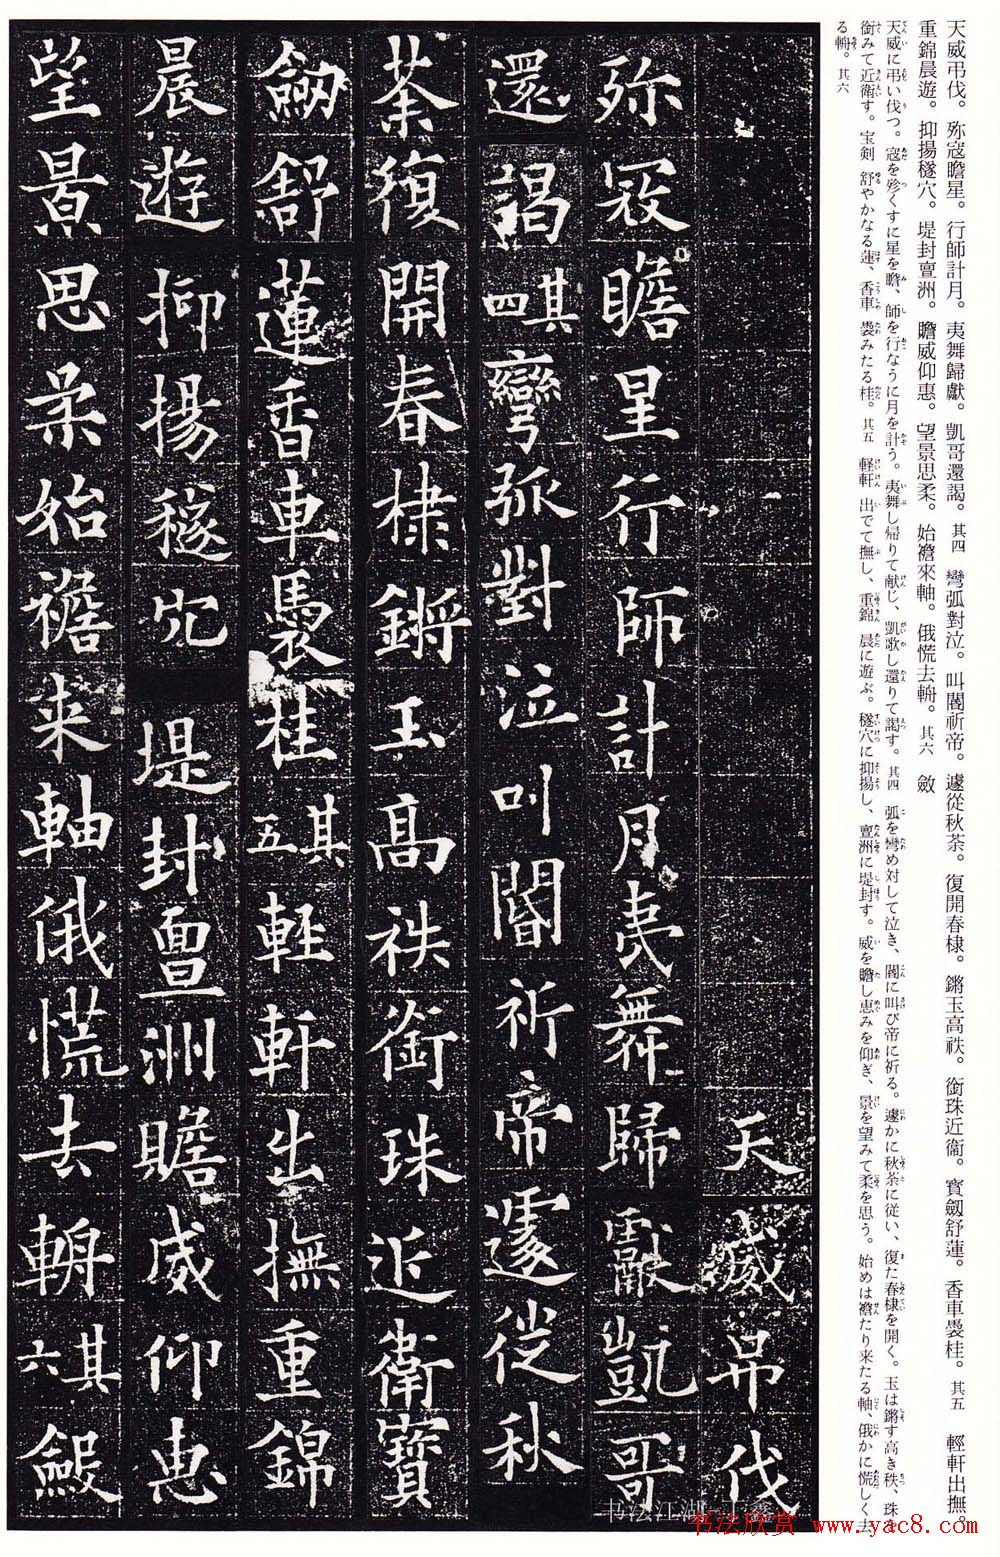 天威弔伐。殄寇瞻星。行師計月。夷舞歸獻。凱哥還謁。其四 彎弧對泣。叫閽祈帝。遽從秋荼。復開春棣。鏘玉高秩。銜珠近衞。寳劔舒蓮。香車褭桂。其五 輕軒出撫。
重錦晨遊。抑揚穟穴。堤封亶洲。瞻威仰惠。望景思柔。始襜來軸。俄慌去輈。其六 斂
天威に弔い伐つ。寇を殄くすに星を瞻、師を行なうに月を計う。夷舞し帰りて献じ、凱歌し還りて謁す。其四 弧を彎め対して泣き、閽に叫び帝に祈る。遽かに秋荼に従い、復た春棣を開く。玉は鏘す高き秩、珠を
銜みて近衛す。宝剣 舒やかなる蓮、香車 褭みたる桂。其五 軽軒 出でて撫し、重錦 晨に遊ぶ。穟穴に抑揚し、亶洲に堤封す。威を瞻し恵みを仰ぎ、景を望みて柔を思う。始めは襜たり来たる軸、俄かに慌しく去
る輈。其六
天威弔伐
殄寇瞻星行師計月夷舞歸獻凱哥
還謁其四彎弧對泣叫閽祈帝遽從秋
荼復開春棣鏘玉高秩銜珠近衛寶
劔舒蓮香車褭桂其五輕軒出撫重錦
晨遊抑揚穟穴堤封亶洲瞻威仰惠
望景思柔始襜来軸俄慌去輈其六斂
书法欣赏 www.yac8.com